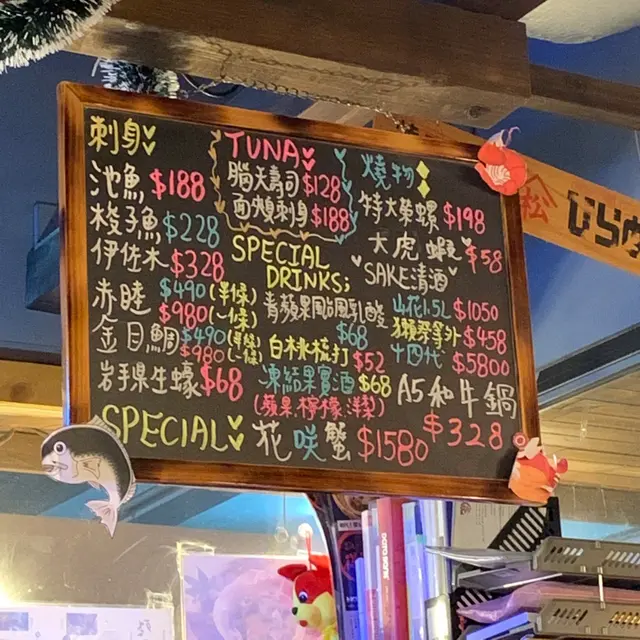 刺身
池魚 $188
梭子魚 $228
伊佐木 $328
赤睦 $490(半條)
$980(一條)
金目鯛 $490(半條)
$980(一條)
岩手県生蠔 $68
TUNA
腦天壽司 $128
面頰刺身 $188
SPECIAL
DRINKS;
青蘋果乳酸
$68
白桃梳打 $52
凍結果實酒 $68
(蘋果.檸檬.洋梨)
燒物
特大榮螺 $198
大虎蝦 $58
SAKE清酒
山花1.5L $1050
獺祭等外 $458
十四代 $5800
A5和牛鍋
$328
SPECIAL
花咲蟹 $1580
松